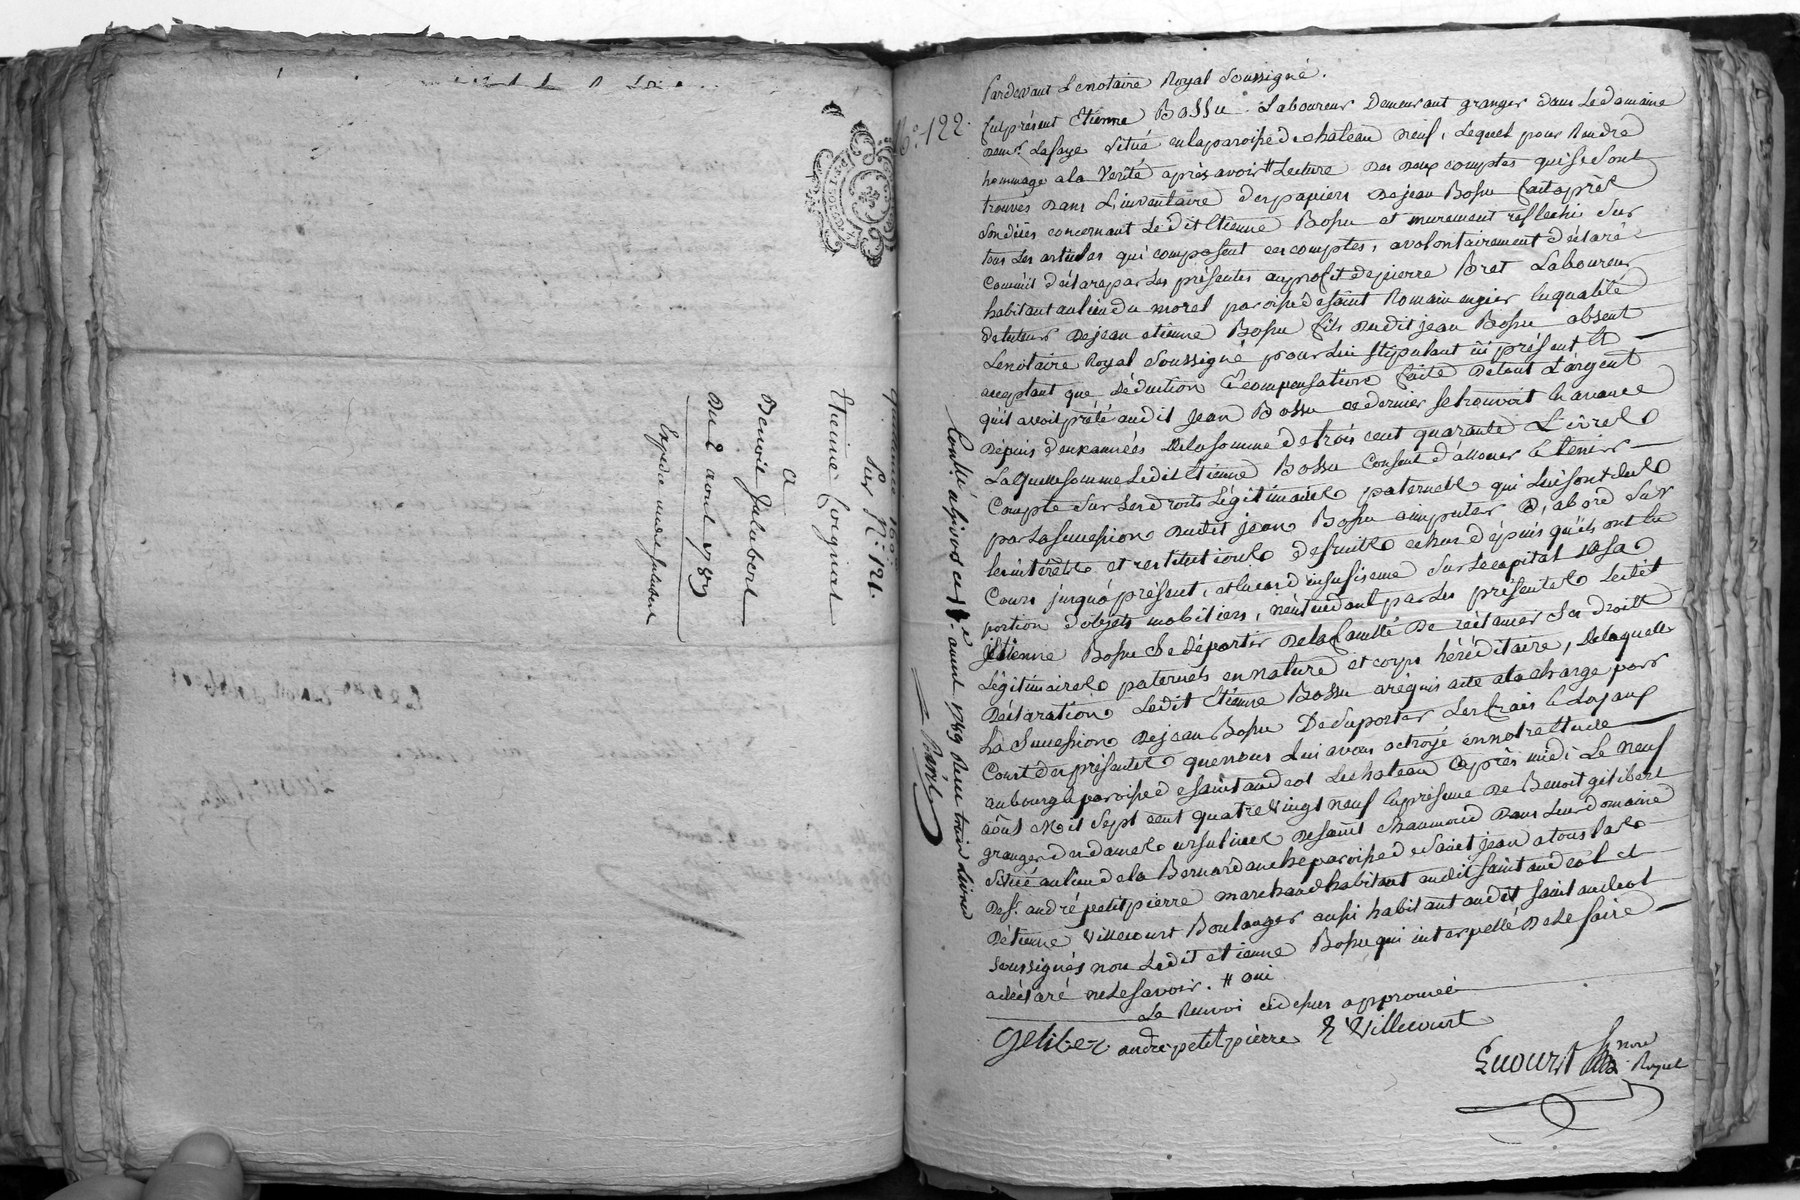 Quittance
Sur N.° 121.
Etienne Coignat
a
Benoit Jalabert
Du 2 aout 1789
Expedié audit Jalabert
N.° 122.
Pardevant Le notaire Royal Soussigné.
fut présent Etienne Bossu Laboureur Demeurant granger dans Le domaine
Lafaye Situé en la paroisse de chateau neuf, Lequel pour Rendre
hommage a la Verité après avoir # Lecture Des Deux comptes qui se sont
trouvés Dans L'inventaire des papiers De jean Bossu fait après
son décès concernant Le dit Etienne Bossu et murement reflechi Sur
tous Les articles qui composent ces comptes, a volontairement déclaré
comme il déclare par Les présentes au profit de pierre Bret Laboureur
habitant au lieu du morel paroisse de saint Romain en jier en qualité
de tuteur De jean etienne Bossu fils dudit jean Bossu absent
Le notaire Royal Soussigné pour Lui stipulant ici présent et
acceptant que Déduction & compensation faite De tout L'argent
qu'il avoit prêté audit Jean Bossu ce dernier se trouvoit En avance
Depuis deux années De la somme de trois cent quarante Livres
Laquelle somme Ledit Etienne Bossu Consent d'allouer & tenir
Compte sur Ses droits Légitimaires paternels qui Lui sont dus
par La Succession dudit jean Bossu a imputer D'abord Sur
Les intérêts et restitutions de fruits echus depuis qu'ils ont eu
Cours jusqu'à présent, et en cas d'insufisence Sur Le capital De sa
portion d'objets mobiliers, n'entendant par Les présentes Ledit
Etienne Bossu Se départir De la faculté De réclamer Ses droits
Légitimaires paternels en nature et corps héréditaire, De laquelle
Déclaration Ledit Etienne Bossu a réquis acte a la charge par
La Succession De jean Bossu De Suporter Les frais & Loyaux
Cout des présentes que nous Lui avons octroyé en notre Etude
au bourg & paroisse de saint andeol Le chateau après midi Le neuf
août mil Sept cent quatre vingt neuf En présence De Benoit gelibert
granger des dames ursulines De saint Chaumond Dans Leur domaine
Situé au lieu de la Bernardanche paroisse de saint jean a touslas
De S.r andré petitpierre marchand habitant audit saint andeol et
D'étienne Villecourt Boulanger aussi habitant audit saint andeol
soussignés non Ledit etienne Bossu qui interpellé De Le faire
a déclaré ne Le savoir. # oui
Le Renvoi cidessus approuvé
Gelibert andré petit pierre E Villecourt
not.re
Royal
Con.llé a Givors ce aout 1789 Recu trois Livres